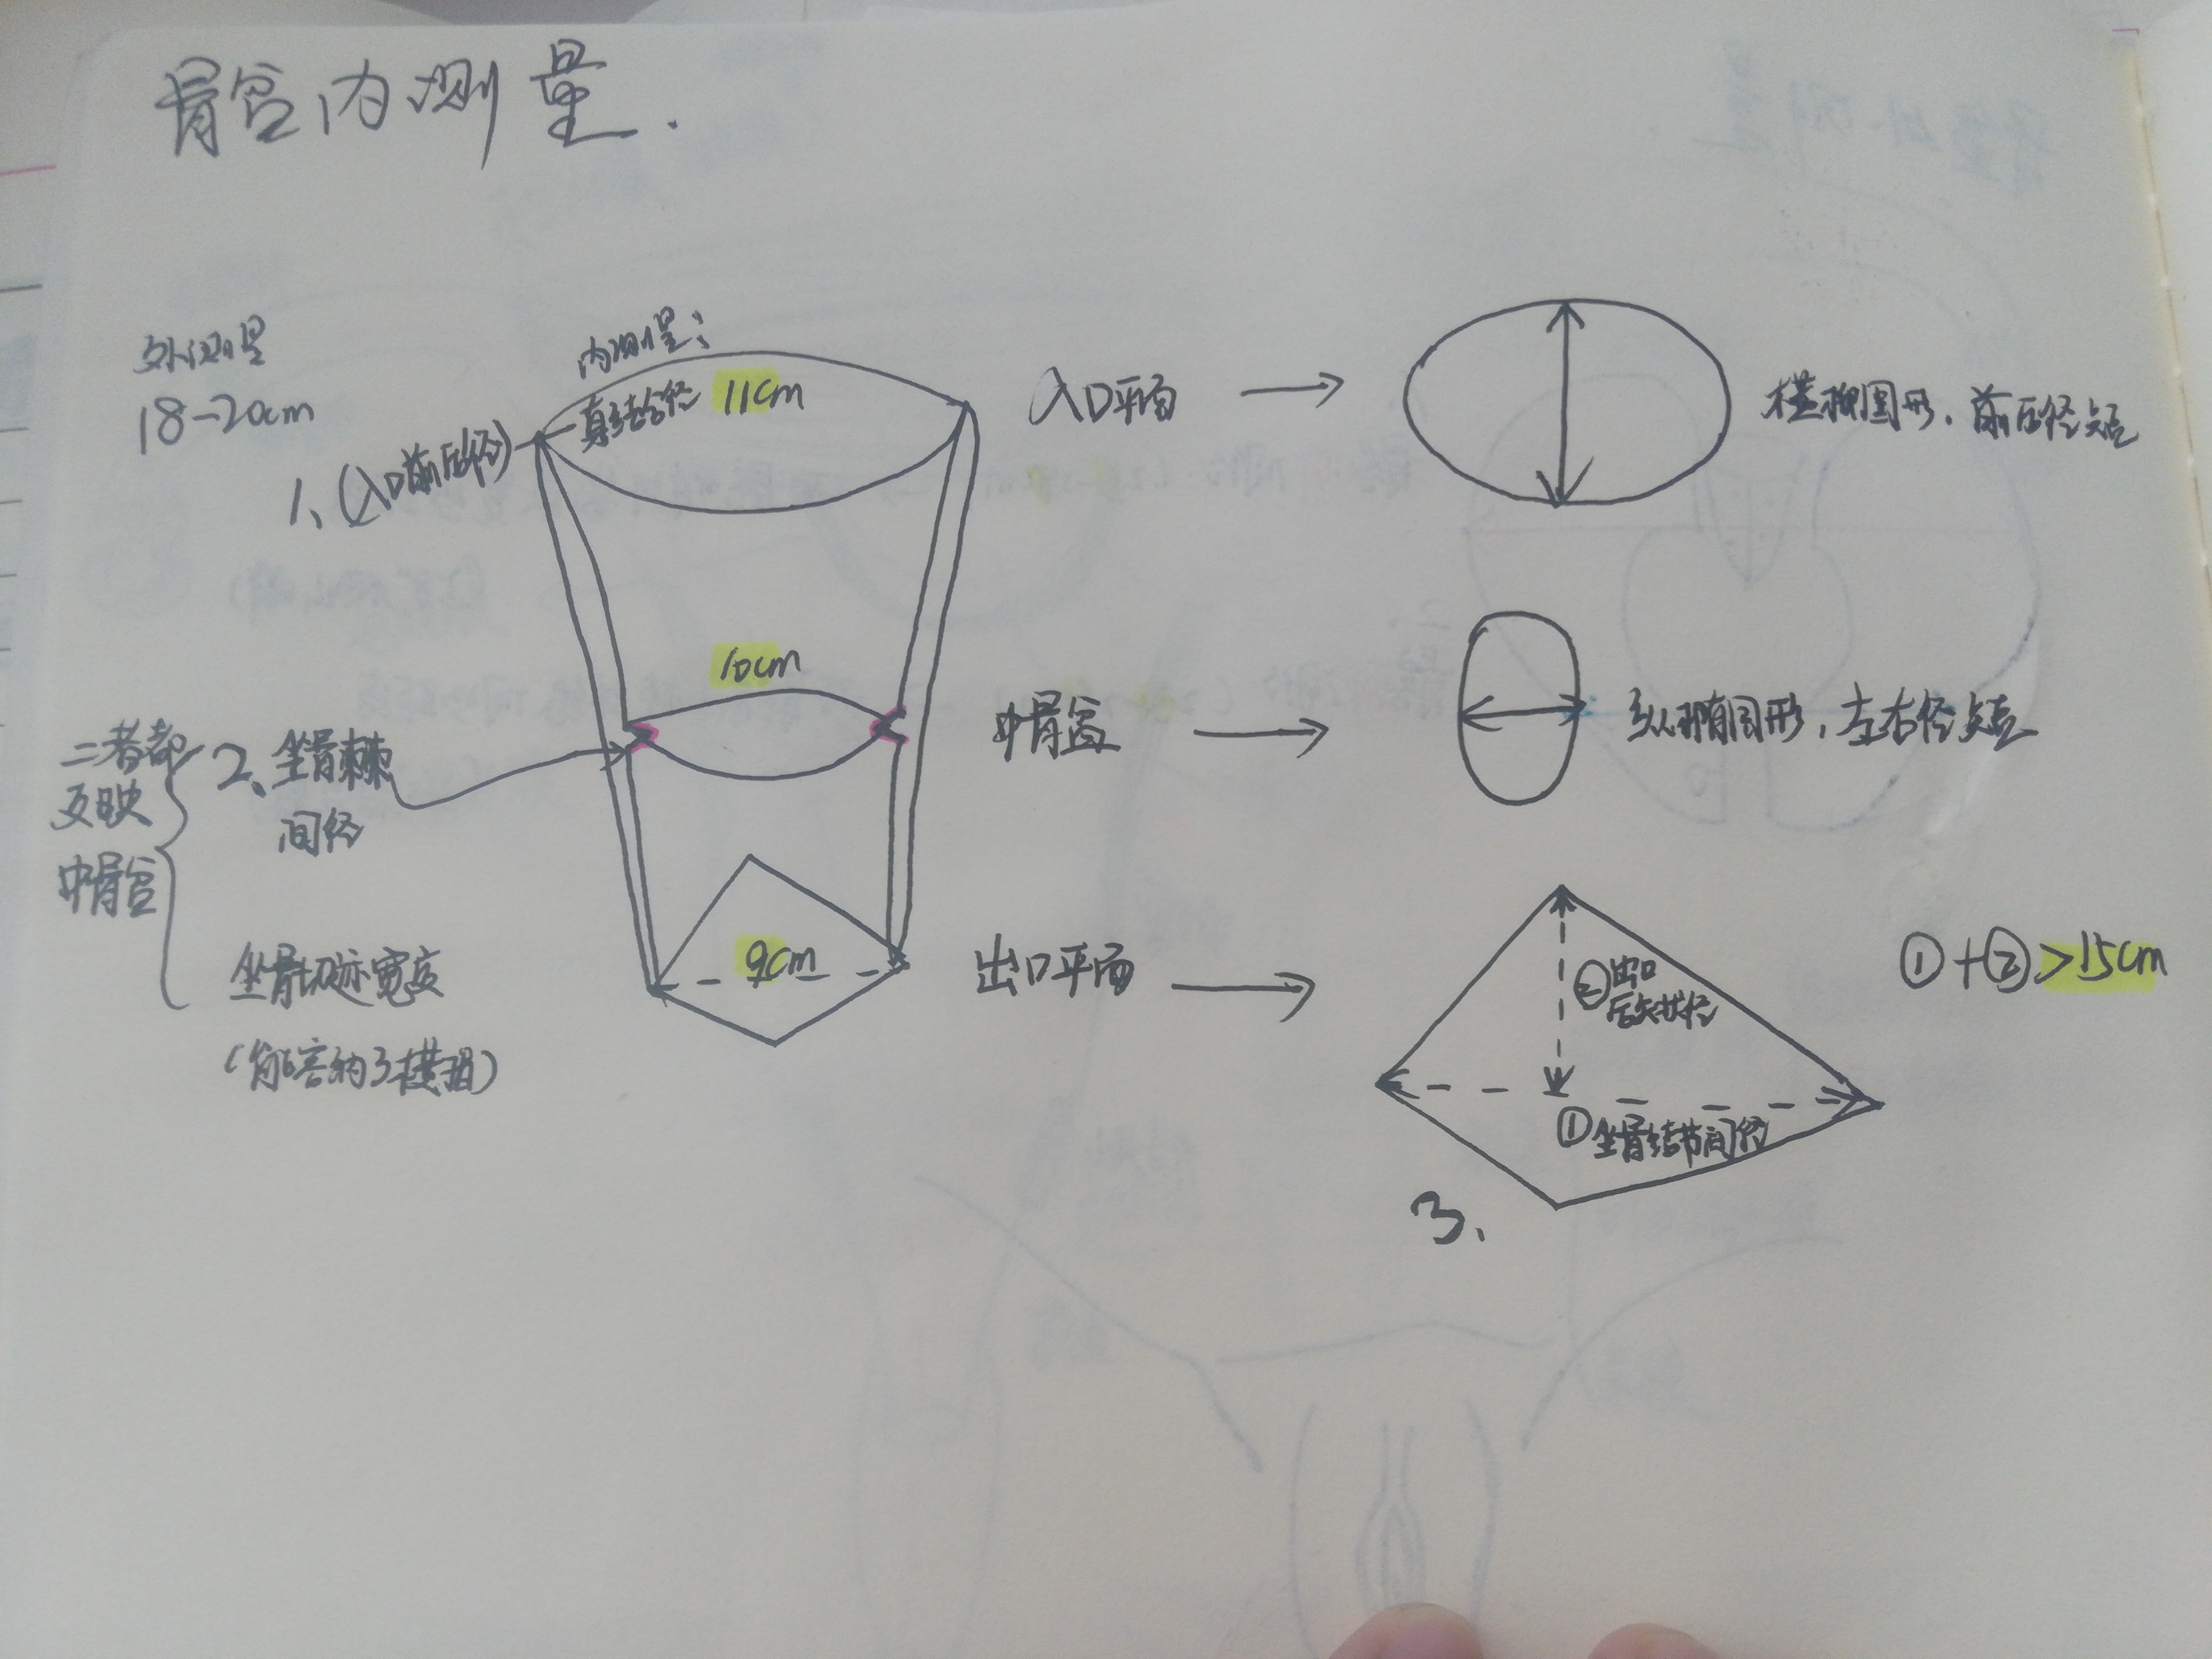 骨盆内测量.
外测量
18-20cm
内测量:
真结合径 11cm
1、(入口前后径)
入口平面
横椭圆形,前后径短
10cm
二者都
反映
中骨盆
2、坐骨棘
间径
中骨盆
纵椭圆形,左右径短
坐骨切迹宽度
(能容纳3横指)
9cm
出口平面
②出口
后矢状径
①坐骨结节间径
①+②>15cm
3、